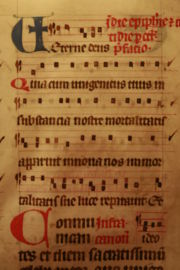 In die epiphie ⁊ i
die ꝑ oct
Eterne deus pfatio.
Quia cum unigenitus tuus in
substancia nostre mortalitatis
apparuit in noua nos inmor
talitatis sue luce reparauit Et
Communi Infra
cantem canonē ideo
tes et diem sacratissimū